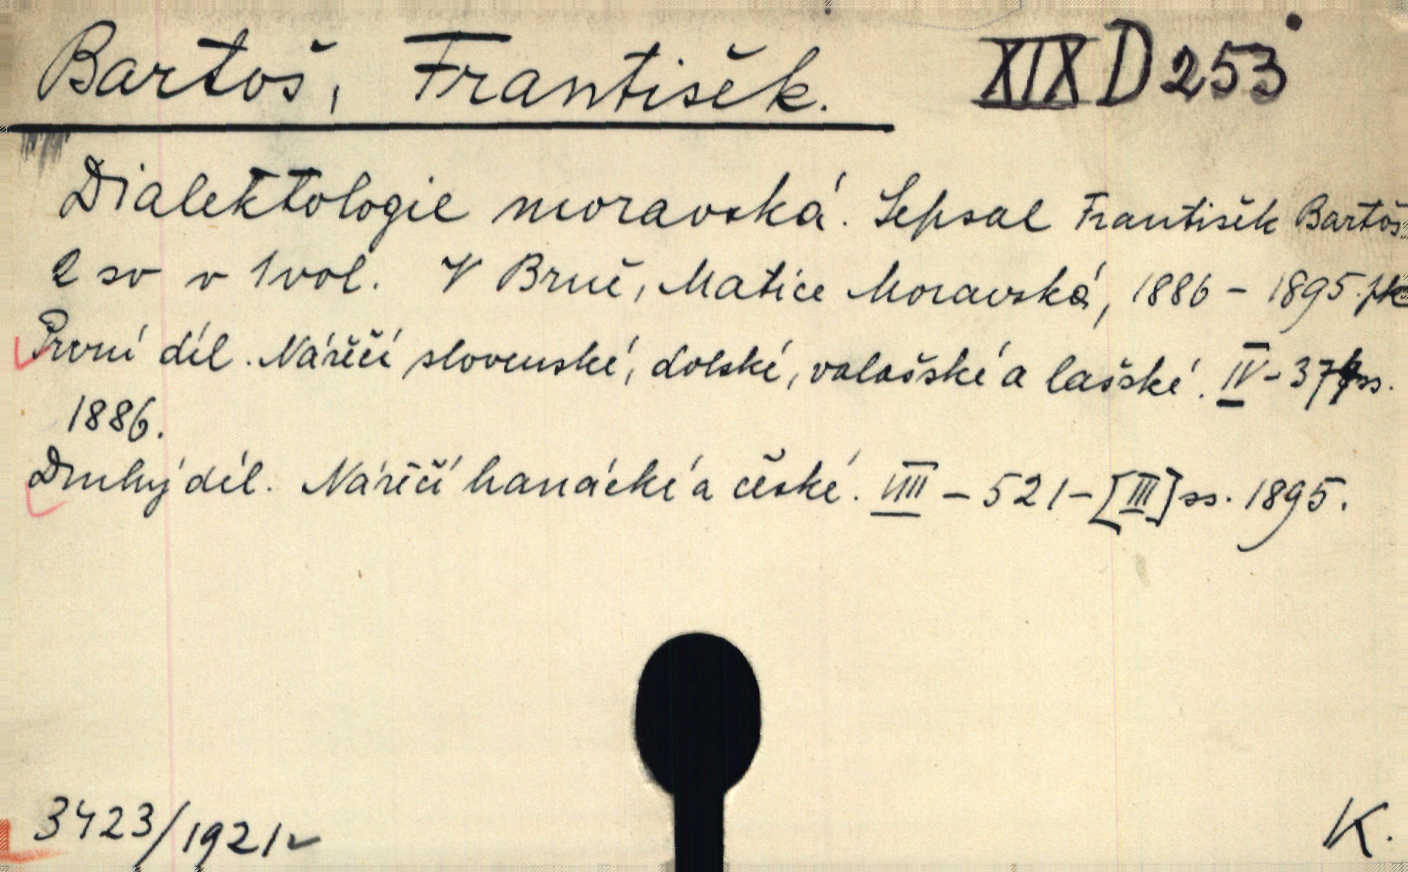 Bartoš, František. XIX D 253
Dialektologie moravská. Sepsal František Bartoš.
2 sv v 1 vol. V Brně, Matice Moravská, 1886 - 1895.
První díl. Nářečí slovenské, dolské, valašské a lašské. IV - 37 ss.
1886.
Druhý díl. Nářečí hanácké a české. VIII - 521 - [III] ss. 1895.
3423/1921
K.